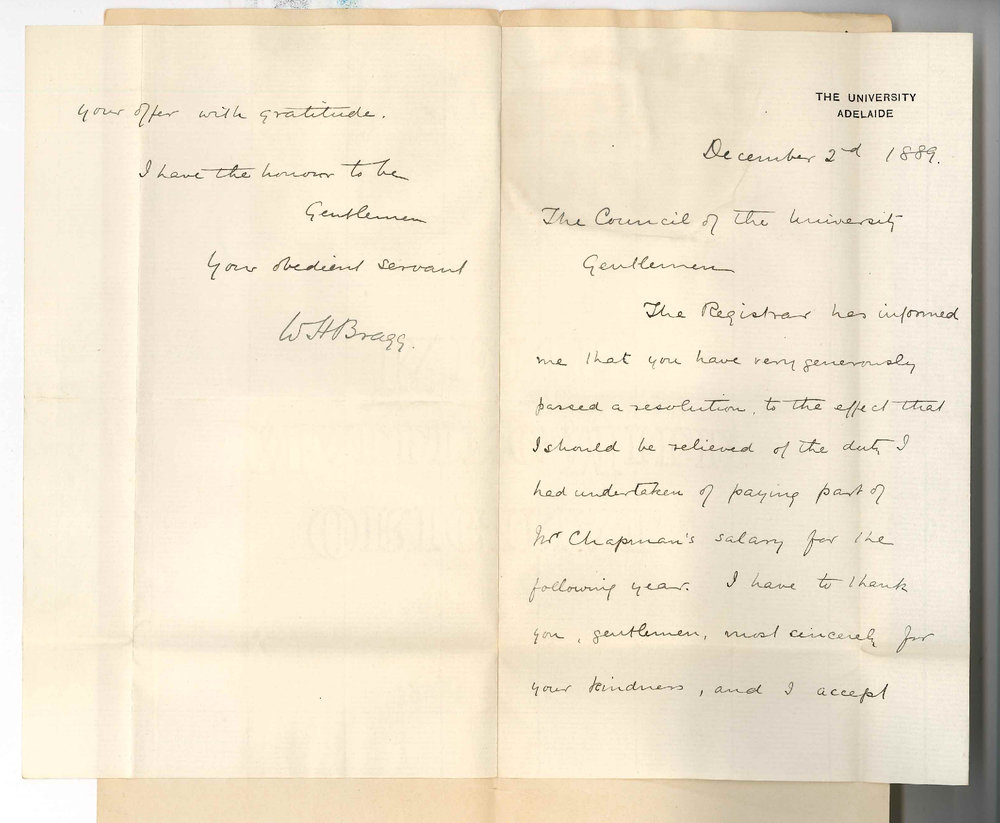 THE UNIVERSITY
ADELAIDE
December 2nd 1889.
The Council of the University
Gentlemen
The Registrar has informed
me that you have very generously
passed a resolution, to the effect that
I should be relieved of the duty I
had undertaken of paying part of
Mr Chapman's salary for the
following year. I have to thank
you, gentlemen, most sincerely for
your kindness, and I accept
your offer with gratitude.
I have the honour to be
Gentlemen
Your obedient servant
W H Bragg.